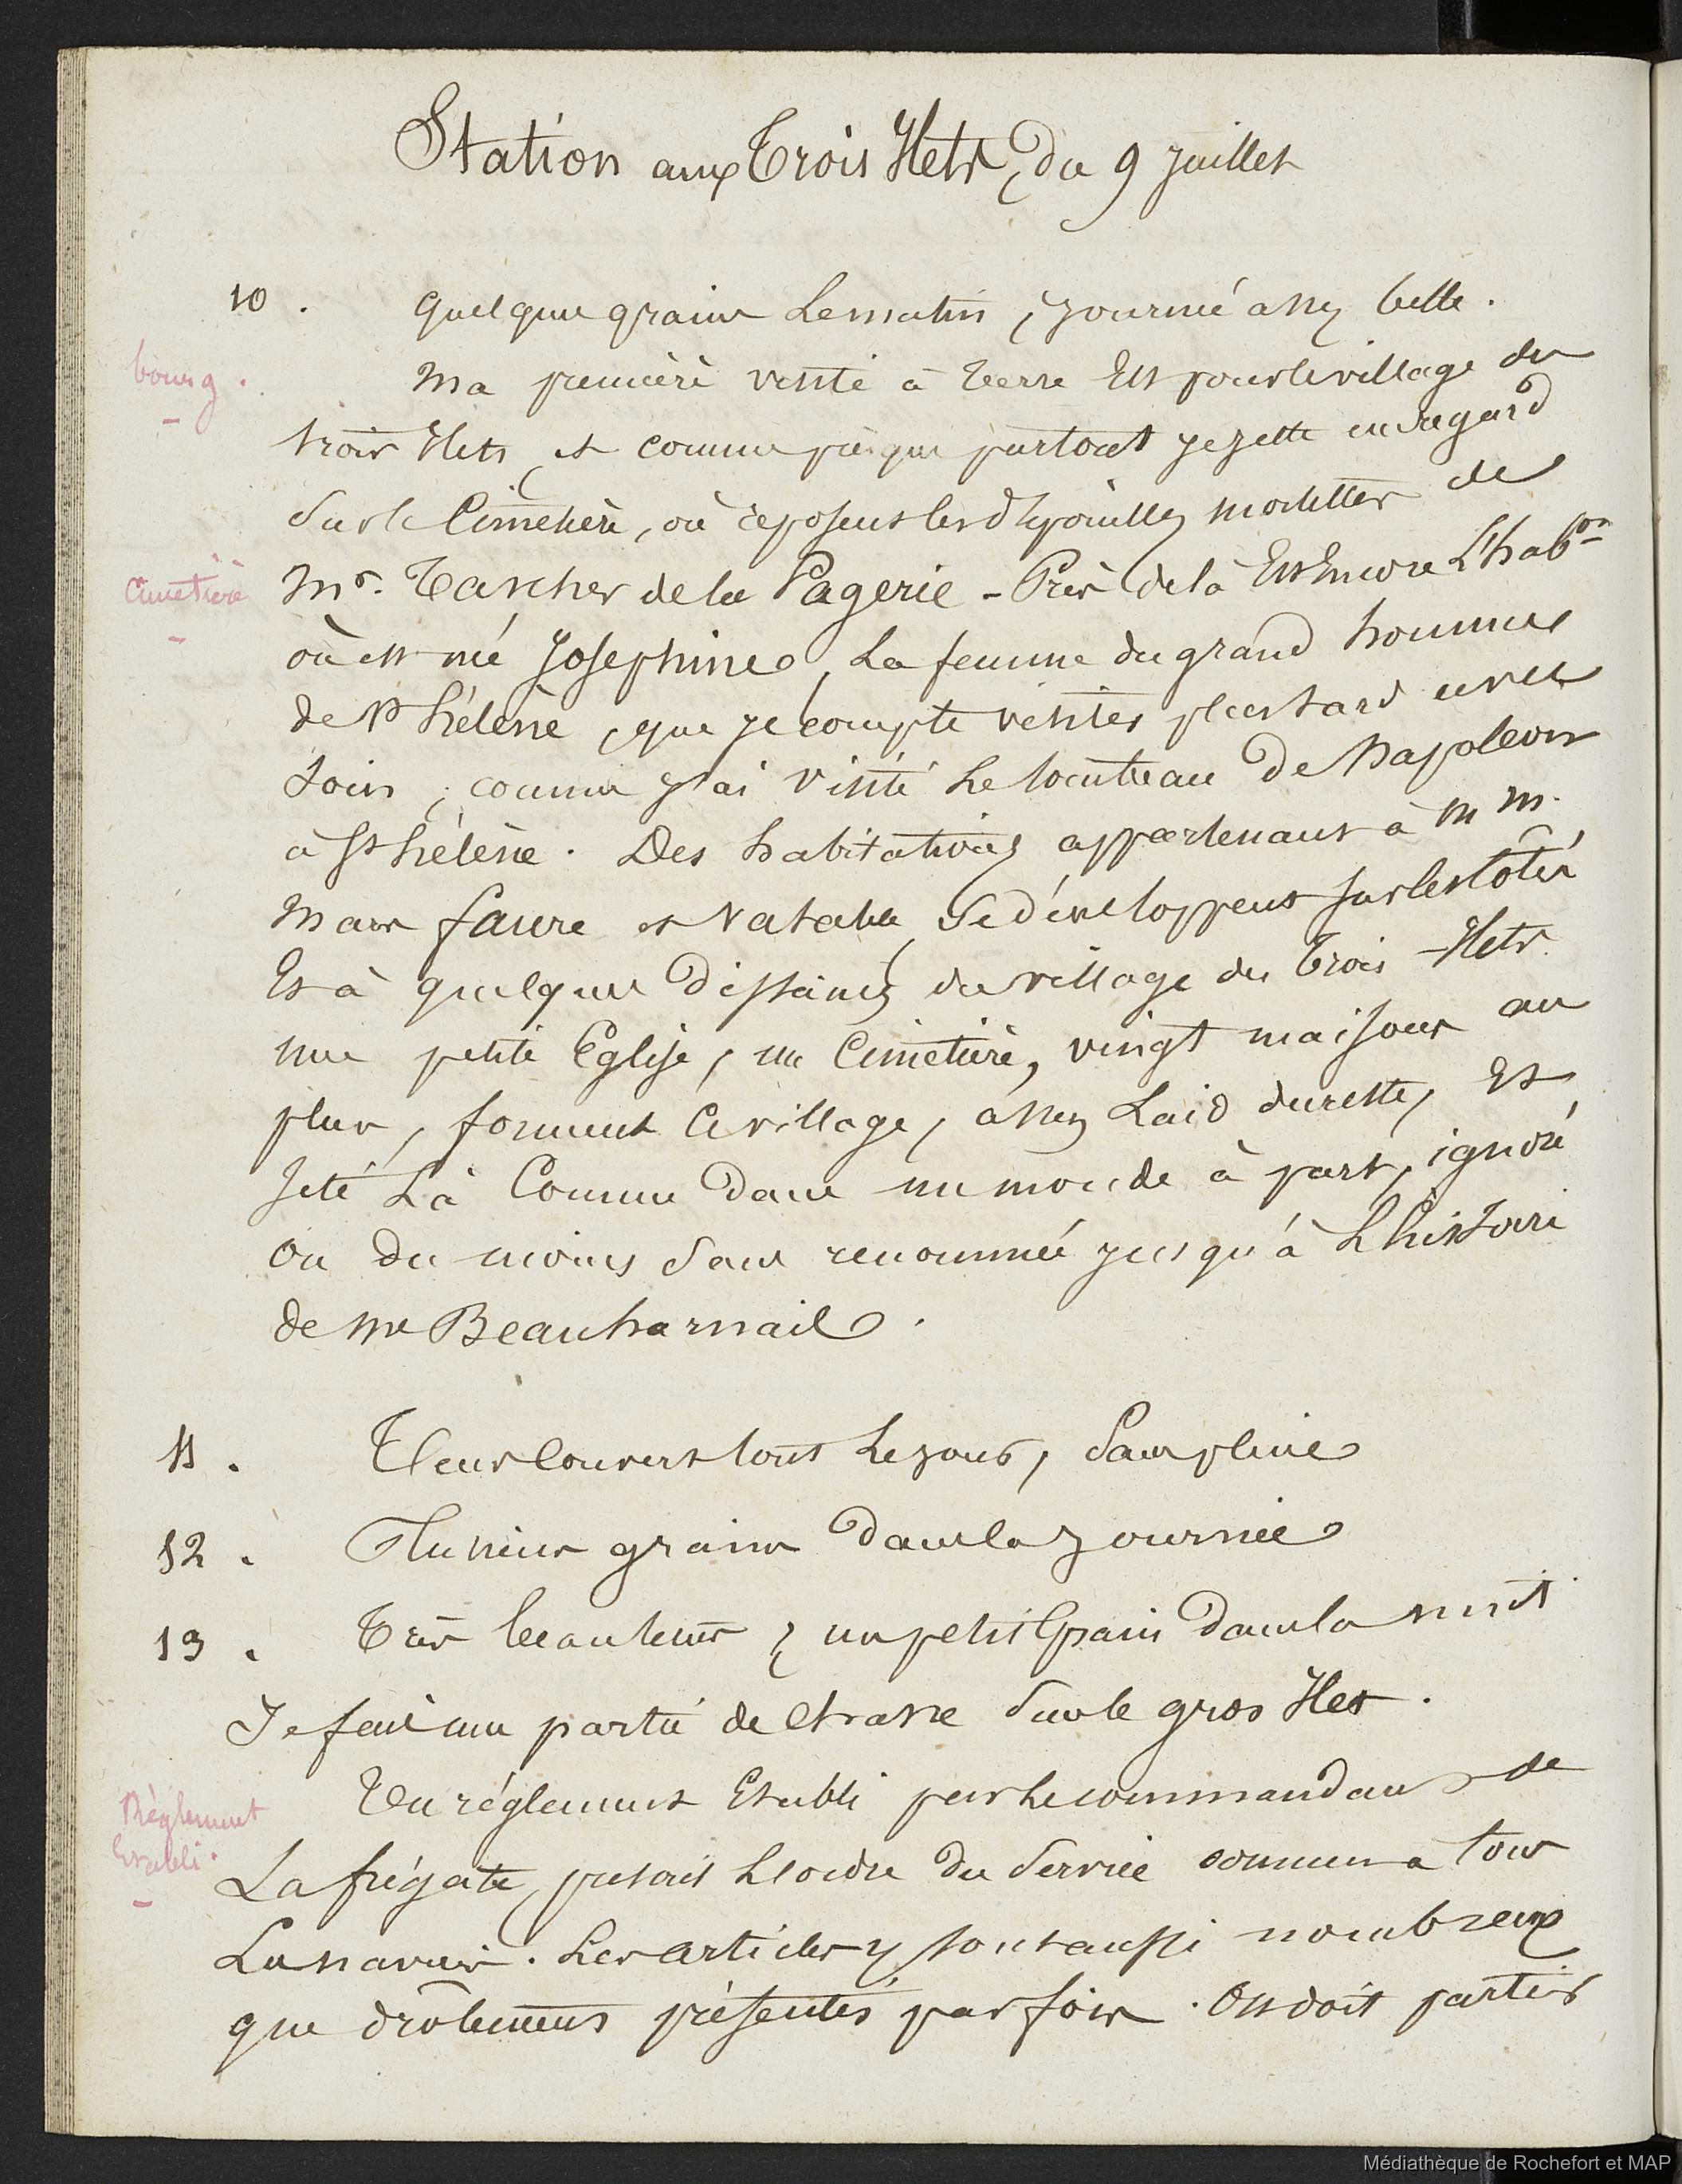 Station aux Trois Ilets, du 9 Juillet
10. quelques grains le matin, journée assez belle.
bourg.
Ma première visite à terre est pour le village des
trois Ilets, et comme presque partout je jette un regard
sur le Cimetière, où reposent les dépouilles mortelles de
Cimetière
Mr. Tascher de la Pagerie - Près de là est encore l'habon
où est né Josephine, la femme du grand homme
de Ste hélène, que je compte visiter plus tard avec
soin, comme j'ai visité le tombeau de Napoléon
à Ste hélène. Des habitations appartenant à M M.
Marx faure et Vatable, se développent sur les côtés
Et à quelques distances du village des Trois-Ilets.
une petite Eglise, un Cimetière, vingt maisons au
plus, forment ce village, assez laid du reste, et
jeté là comme dans un monde à part, ignoré
ou du moins sans renommée jusqu'à l'histoire
de me Beauharnail.
11. Tems couvert tout le jour, sans pluie
12. Plusieurs grains dans la journée
13. Très beau tems, un petit grain dans la nuit
Je fais une partie de chasse sur le gros Ilet.
Règlement
Etabli.
Un réglement Etabli par le commandant de
La frégate, prescrit l'ordre du service commun à tous
Les navires. Les articles y sont aussi nombreux
que drôlement présentés parfois. On doit partir
Médiathèque de Rochefort et MAP